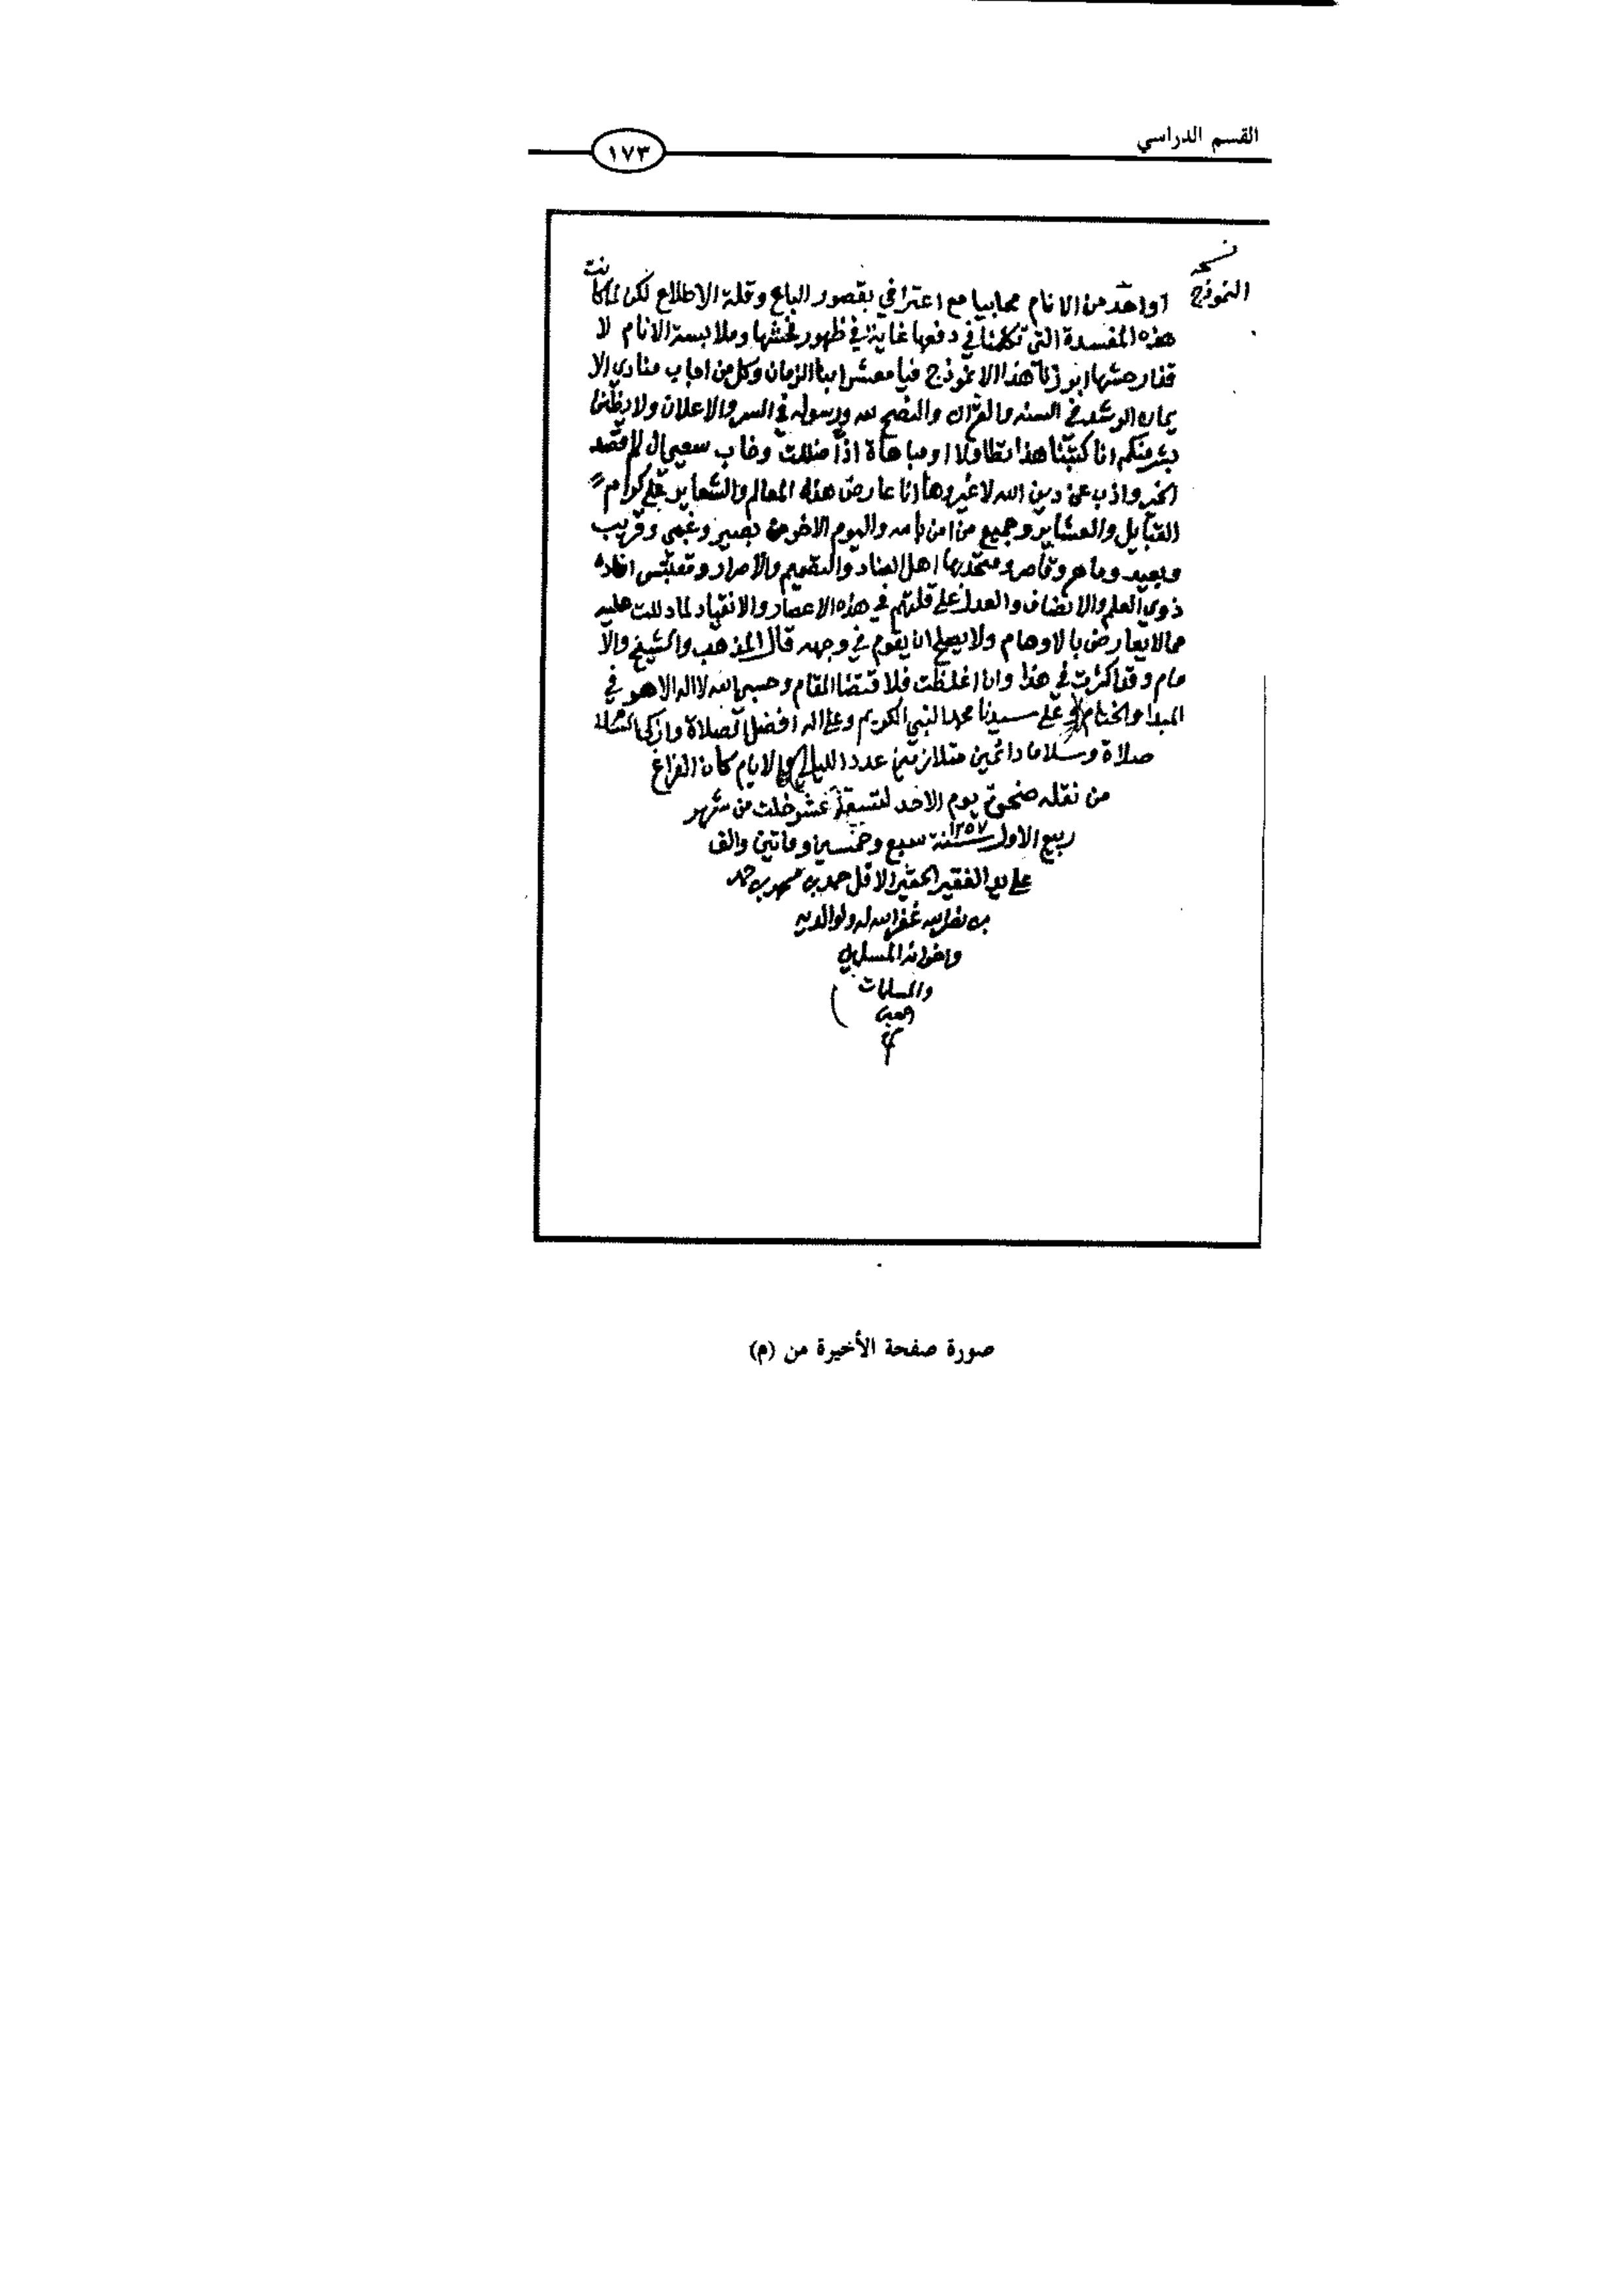 القسم الدراسي
١٧٣
نسخه
النموذج
او احد من الانام محابيا مع اعترافي بقصور الباع وقلة الاطلاع لكن لما كانت
هذه المفسدة التي تكلمنا في دفعها غاية في ظهور فحشها وملابسة الانام لا
هذا الانموذج فيا معشر ابنا الزمان وكل من اجاب منادي الا
يمان الرشد في السنه والقران والنصح لله ورسوله في السر والاعلان ولا يظن
منكم انا كتبنا هذا تطاولا او مباهاة اذا ضللت وخاب سعيي ان لم اقصد
الخير واذب عن دين الله لا غير وها انا عارض هذه المعالم والشعاير على كرام
القبايل والعشاير وجميع من امن بالله واليوم الاخر من بصير وغبي وقريب
وبعيد وماهر وقاصر ومتحد بها اهل العناد والتقميم والاصرار ومقتبس افادة
ذوي العلم والانصاف والعدل على قلتهم في هذه الاعصار والانقياد لما دلت عليه
مما لا يعارض بالاوهام ولا يصلح ان يقوم في وجهه قال المذهب والشيخ والا
مام وقد اكثرت في هذا وان اغلظت فلاقتضا المقام وحسبي الله لا اله الا هو في
المبدا والختام وعلى سيدنا محمد النبي الكريم وعلى اله افضل الصلاة وازكى
صلاة وسلاما دائمين متلازمين عدد الليالي والايام كان الفراغ
من نقله ضحوة يوم الاحد لتسعة عشر خلت من شهر
ربيع الاول سنة ١٢٥٧ سبع وخمسين وماتين والف
على يد الفقير الحقير الاقل حمد بن حمد
بن نصر الله غفر الله له ولوالديه
واخوانه المسلمين
والمسلمات
صورة صفحة الأخيرة من (م)